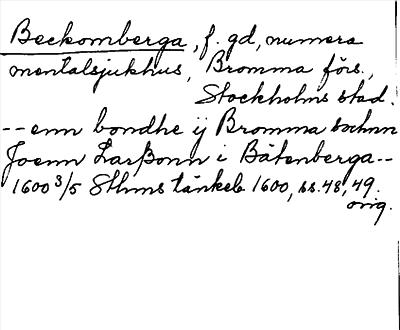 Beckomberga, f. gd, numera
mentalsjukhus, Bromma förs.,
Stockholms stad.
-- enn bondhe ij Bromma sochnn
Joenn Larßonn i Bätenberga --
1600 3/5 Sthms tänkeb. 1600, ss. 48, 49.
orig.